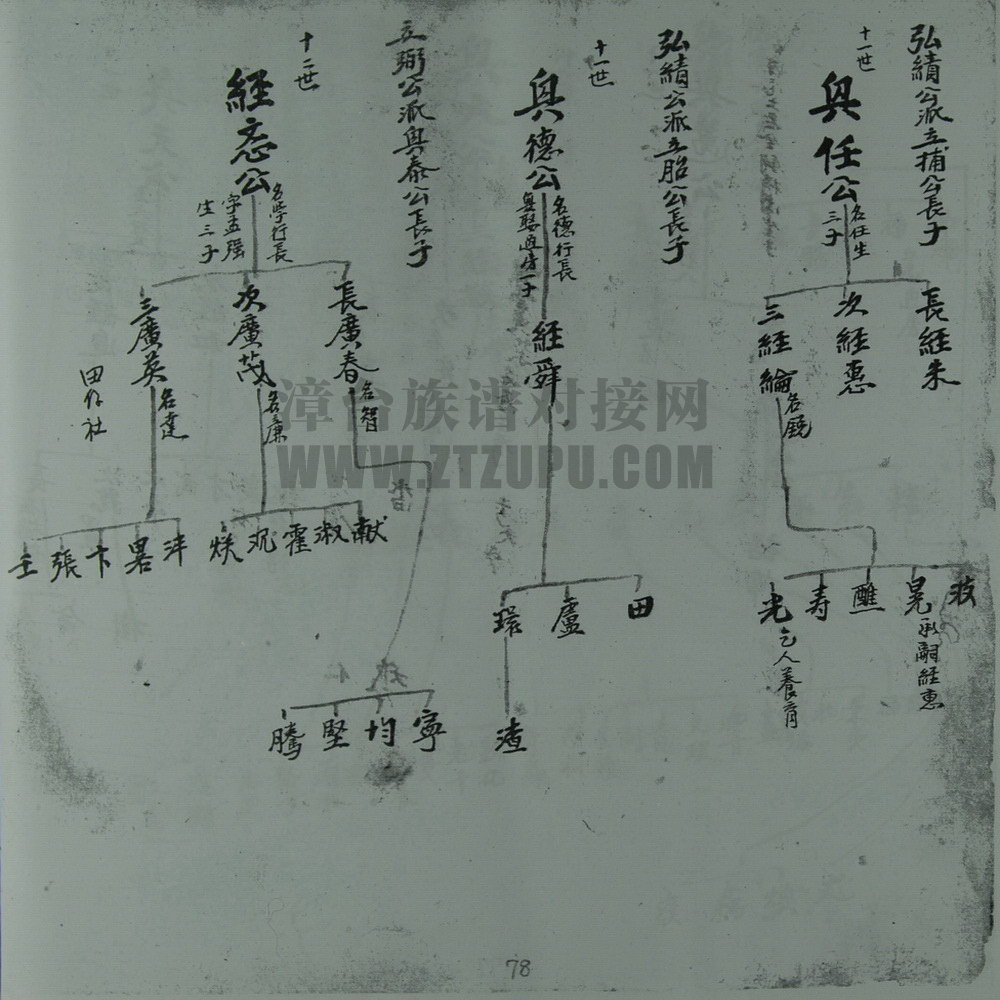 弘績公派立捕公長子
十一世
與任公
名任生
三子
長経朱
次経惠
三経綸
名殿
放
晃
承嗣経惠
醮
寿
光
乞人養育
弘績公派立胎公長子
十一世
與德公
名德行長
無娶過房一子
経舜
田
廬
環
渣
立弼公派與泰公長子
十二世
経忞公
名學行長
字孟强
生三子
長廣春
名智
次廣茂
名廉
三廣英
名達
田仔社
寧
均
堅
騰
献
淑
霍
汎
焕
沣
畧
卞
張
主
漳台族谱对接网
WWW.ZTZUPU.COM
78